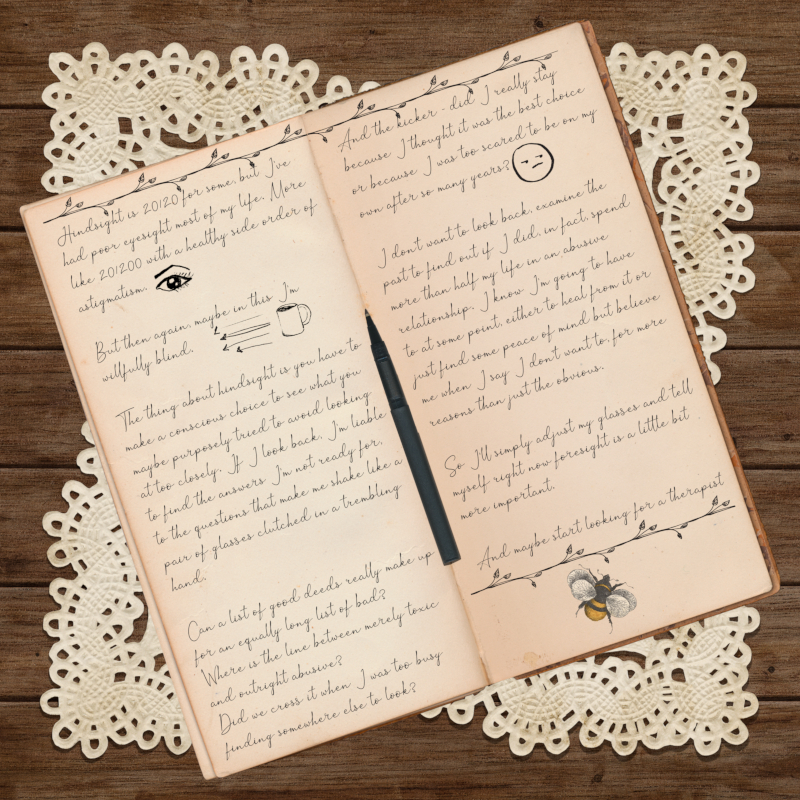 Hindsight is 20120 for some, but I've
had poor eyesight most of my life. More
like 201200 with a healthy side order of
astigmatism.
But then again, maybe in this I'm
willfully blind.
The thing about hindsight is you have to
make a conscious choice to see what you
maybe purposely tried to avoid looking
at too closely. If I look back, I'm liable
to find the answers I'm not ready for,
to the questions that make me shake like a
pair of glasses clutched in a trembling
hand.
Can a list of good deeds really make up
for an equally long list of bad?
Where is the line between merely toxic
and outright abusive?
Did we cross it when I was too busy
finding somewhere else to look?
And the kicker - did I really stay
because I thought it was the best choice
or because I was too scared to be on my
own after so many years?
I don't want to look back, examine the
past to find out if I did, in fact, spend
more than half my life in an abusive
relationship. I know I'm going to have
to at some point, either to heal from it or
just find some peace of mind but believe
me when I say I don't want to, for more
reasons than just the obvious.
So I'll simply adjust my glasses and tell
myself right now foresight is a little bit
more important.
And maybe start looking for a therapist